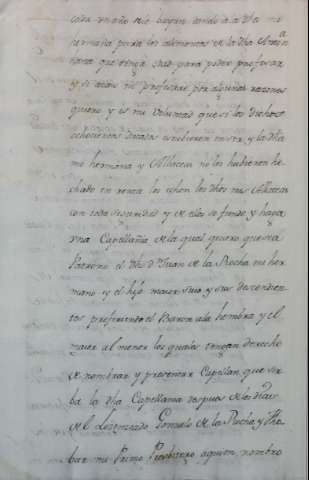 cada un año se le vayan dando a la dha mi
hermana para los alimentos de la dha Anto
nia que tenga edad para poder profesar
y si acaso no profesare por algunas razones
quiero y es mi voluntad que si los dichos
ochocientos ducados estubieren en ser, y la dha
mi hermana y Albacea no los hubieren he
chado en renta los echen los dhos mis Albaceas
con toda seguridad y de ellos se funde y haga
vna Capellania de la qual quiero que sea
Patrono el dho Dn Juan de la Rocha mi her
mano y el hijo maior suio y sus descendien
tes prefiriendo el Baron a la hembra y el
maior al menor los quales tengan derecho
de nombrar y presentar Capellan que sir
ba la dha Capellania despues de los dias
de el Lizenciado Gonzalo de la Rocha y
bar mi Primo Presbitero a quien nombro